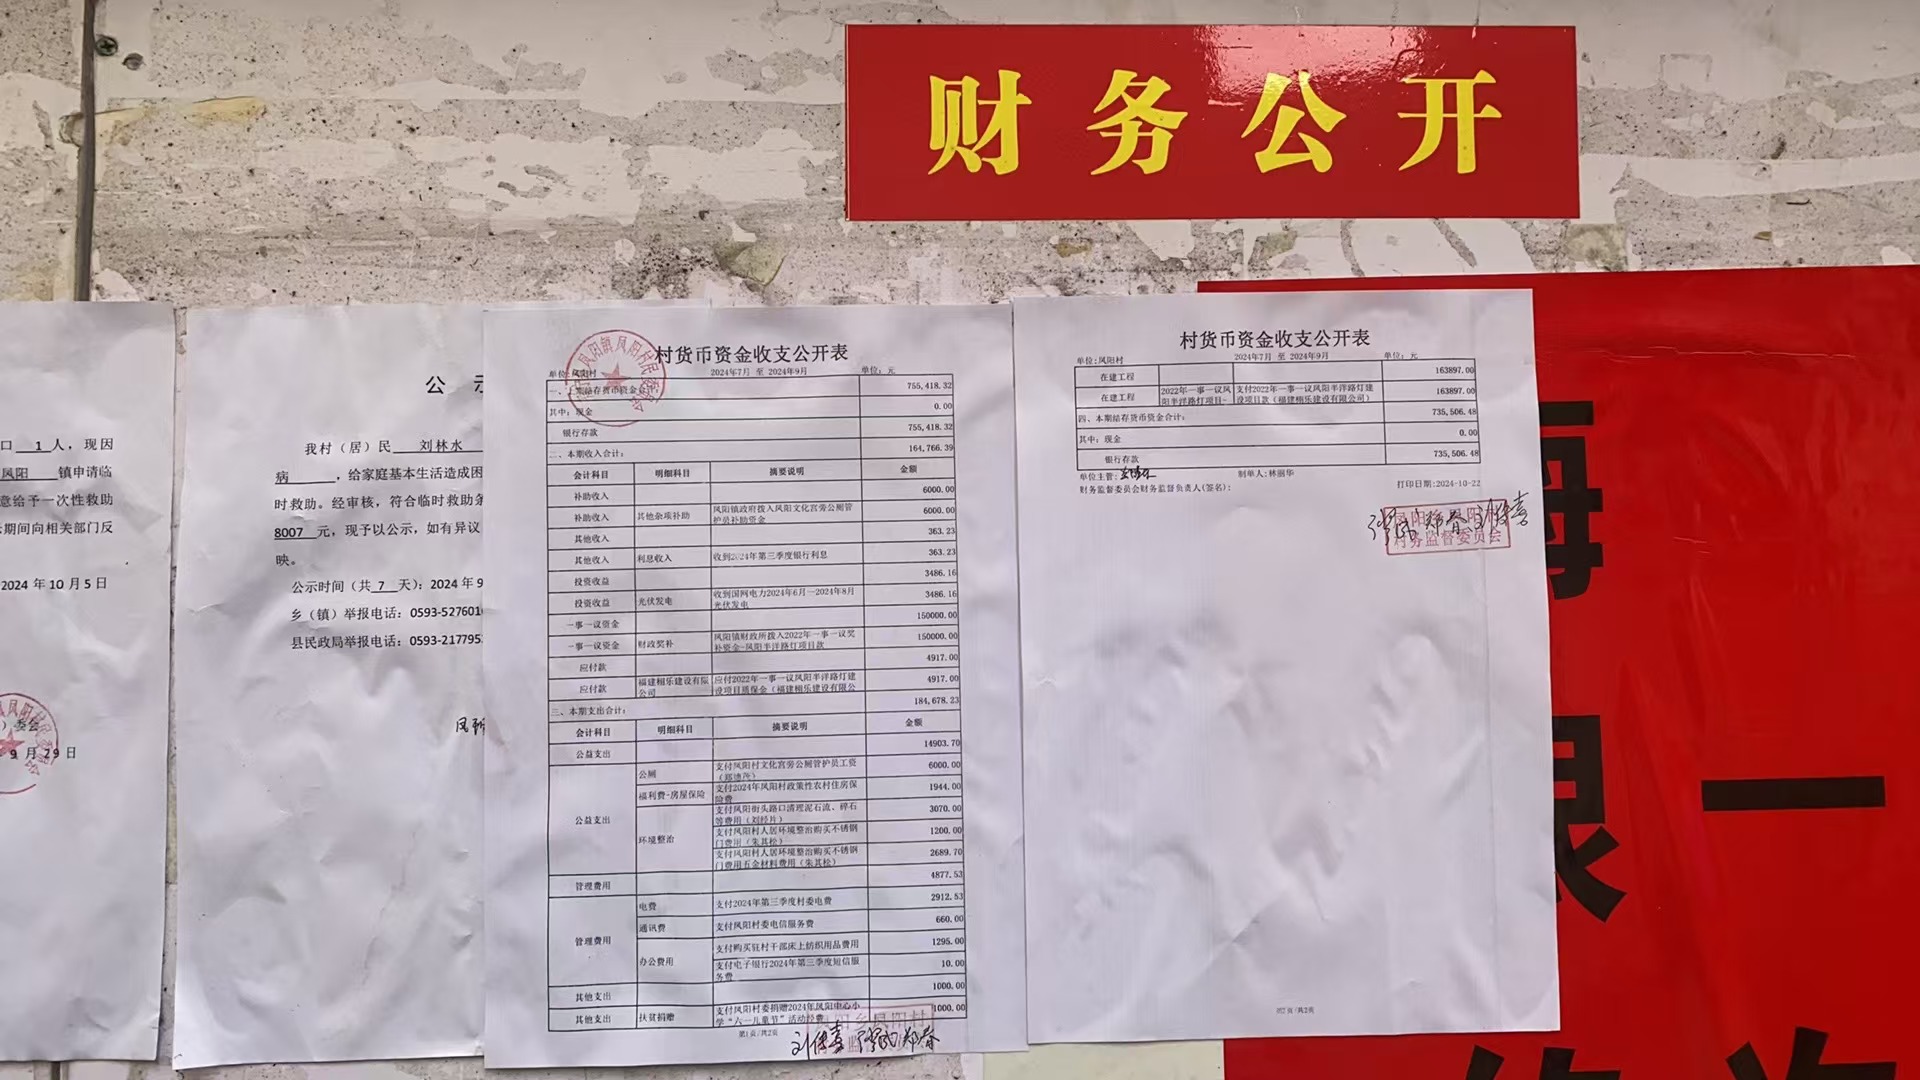 财务公开
口 1 人，现因
凤阳 镇申请临
意给予一次性救助
示期间向相关部门反
2024 年 10 月 5 日
）委会
9 月 29 日
公 示
我村（居）民 刘林水
病 ，给家庭基本生活造成困
时救助。经审核，符合临时救助条
8007 元，现予以公示，如有异议
映。
公示时间（共 7 天）：2024 年 9
乡（镇）举报电话：0593-527601
县民政局举报电话：0593-217795
村货币资金收支公开表
单位：凤阳村 2024年7月 至 2024年9月 单位：元
一、上期结存货币资金合计： 755,418.32
其中：现金 0.00
银行存款 755,418.32
二、本期收入合计： 164,766.39
会计科目 明细科目 摘要说明 金额
补助收入 6000.00
补助收入 其他杂项补助 凤阳镇政府拨入凤阳文化宫旁公厕管护员补助资金 6000.00
其他收入 363.23
其他收入 利息收入 收到2024年第三季度银行利息 363.23
投资收益 3486.16
投资收益 光伏发电 收到国网电力2024年6月—2024年8月光伏发电 3486.16
一事一议资金 150000.00
一事一议资金 财政奖补 凤阳镇财政所拨入2022年一事一议奖补资金-凤阳半洋路灯项目款 150000.00
应付款 4917.00
应付款 福建栩乐建设有限公司 应付2022年一事一议凤阳半洋路灯建设项目质保金（福建栩乐建设有限公 4917.00
三、本期支出合计： 184,678.23
会计科目 明细科目 摘要说明 金额
公益支出 14903.70
公益支出 公厕 支付凤阳村文化宫旁公厕管护员工资 6000.00
福利费-房屋保险 支付2024年凤阳村政策性农村住房保险费 1944.00
环境整治 支付凤阳街头路口清理泥石流、碎石等费用（刘经片） 3070.00
支付凤阳村人居环境整治购买不锈钢门费用（朱其松） 1200.00
支付凤阳村人居环境整治购买不锈钢门费用五金材料费用（朱其松） 2689.70
管理费用 4877.53
管理费用 电费 支付2024年第三季度村委电费 2912.53
通讯费 支付凤阳村委电信服务费 660.00
办公费用 支付购买驻村干部床上纺织用品费用 1295.00
支付电子银行2024年第三季度短信服务费 10.00
其他支出 1000.00
其他支出 扶贫捐赠 支付凤阳村委捐赠2024年凤阳中心小学“六一儿童节”活动经费 1000.00
第1页/共2页
村货币资金收支公开表
单位：凤阳村 2024年7月 至 2024年9月 单位：元
在建工程 163897.00
在建工程 2022年一事一议凤阳半洋路灯项目- 支付2022年一事一议凤阳半洋路灯建设项目款（福建栩乐建设有限公司） 163897.00
四、本期结存货币资金合计： 735,506.48
其中：现金 0.00
银行存款 735,506.48
单位主管： 制单人：林丽华
财务监督委员会财务监督负责人（签名）： 打印日期：2024-10-22
村务监督委员会
第2页/共2页
一